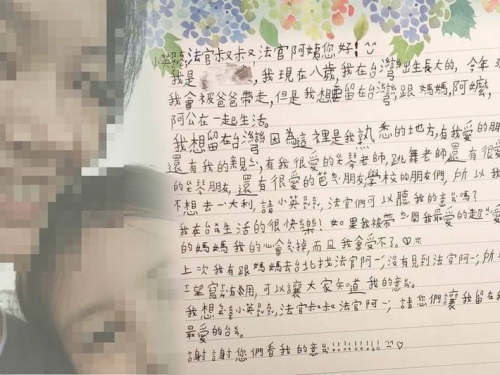 小英總統法官叔叔法官阿姨您好!
我是，我現在八歲，我在台灣出生長大的，今年
我會被爸爸帶走，但是我想要留在台灣跟媽媽，阿嬤，
阿公在一起生活。
我想留在台灣因為這裡是我熟悉的地方，有我愛的朋
還有我的親，有我很愛的琴老師，跳舞老師還有很愛
的琴朋友，還有很愛的芭朋友學校的朋友們，所以我
不想去一大利，請小英，法官們可以聽我的意嗎？
我在台生活的很快樂！如果我被帶開我最愛的超愛
的媽媽我的心會掉，而且我會受不了。♡
上次我有跟媽媽去台北找法官阿，沒有見到法官阿，所
望寫有用，可以讓大家知道我的意。
我想小英，法官叔叔法官阿，請您們讓我留在
最愛的台。
謝謝您們看我的意!!!!!!!!!♡